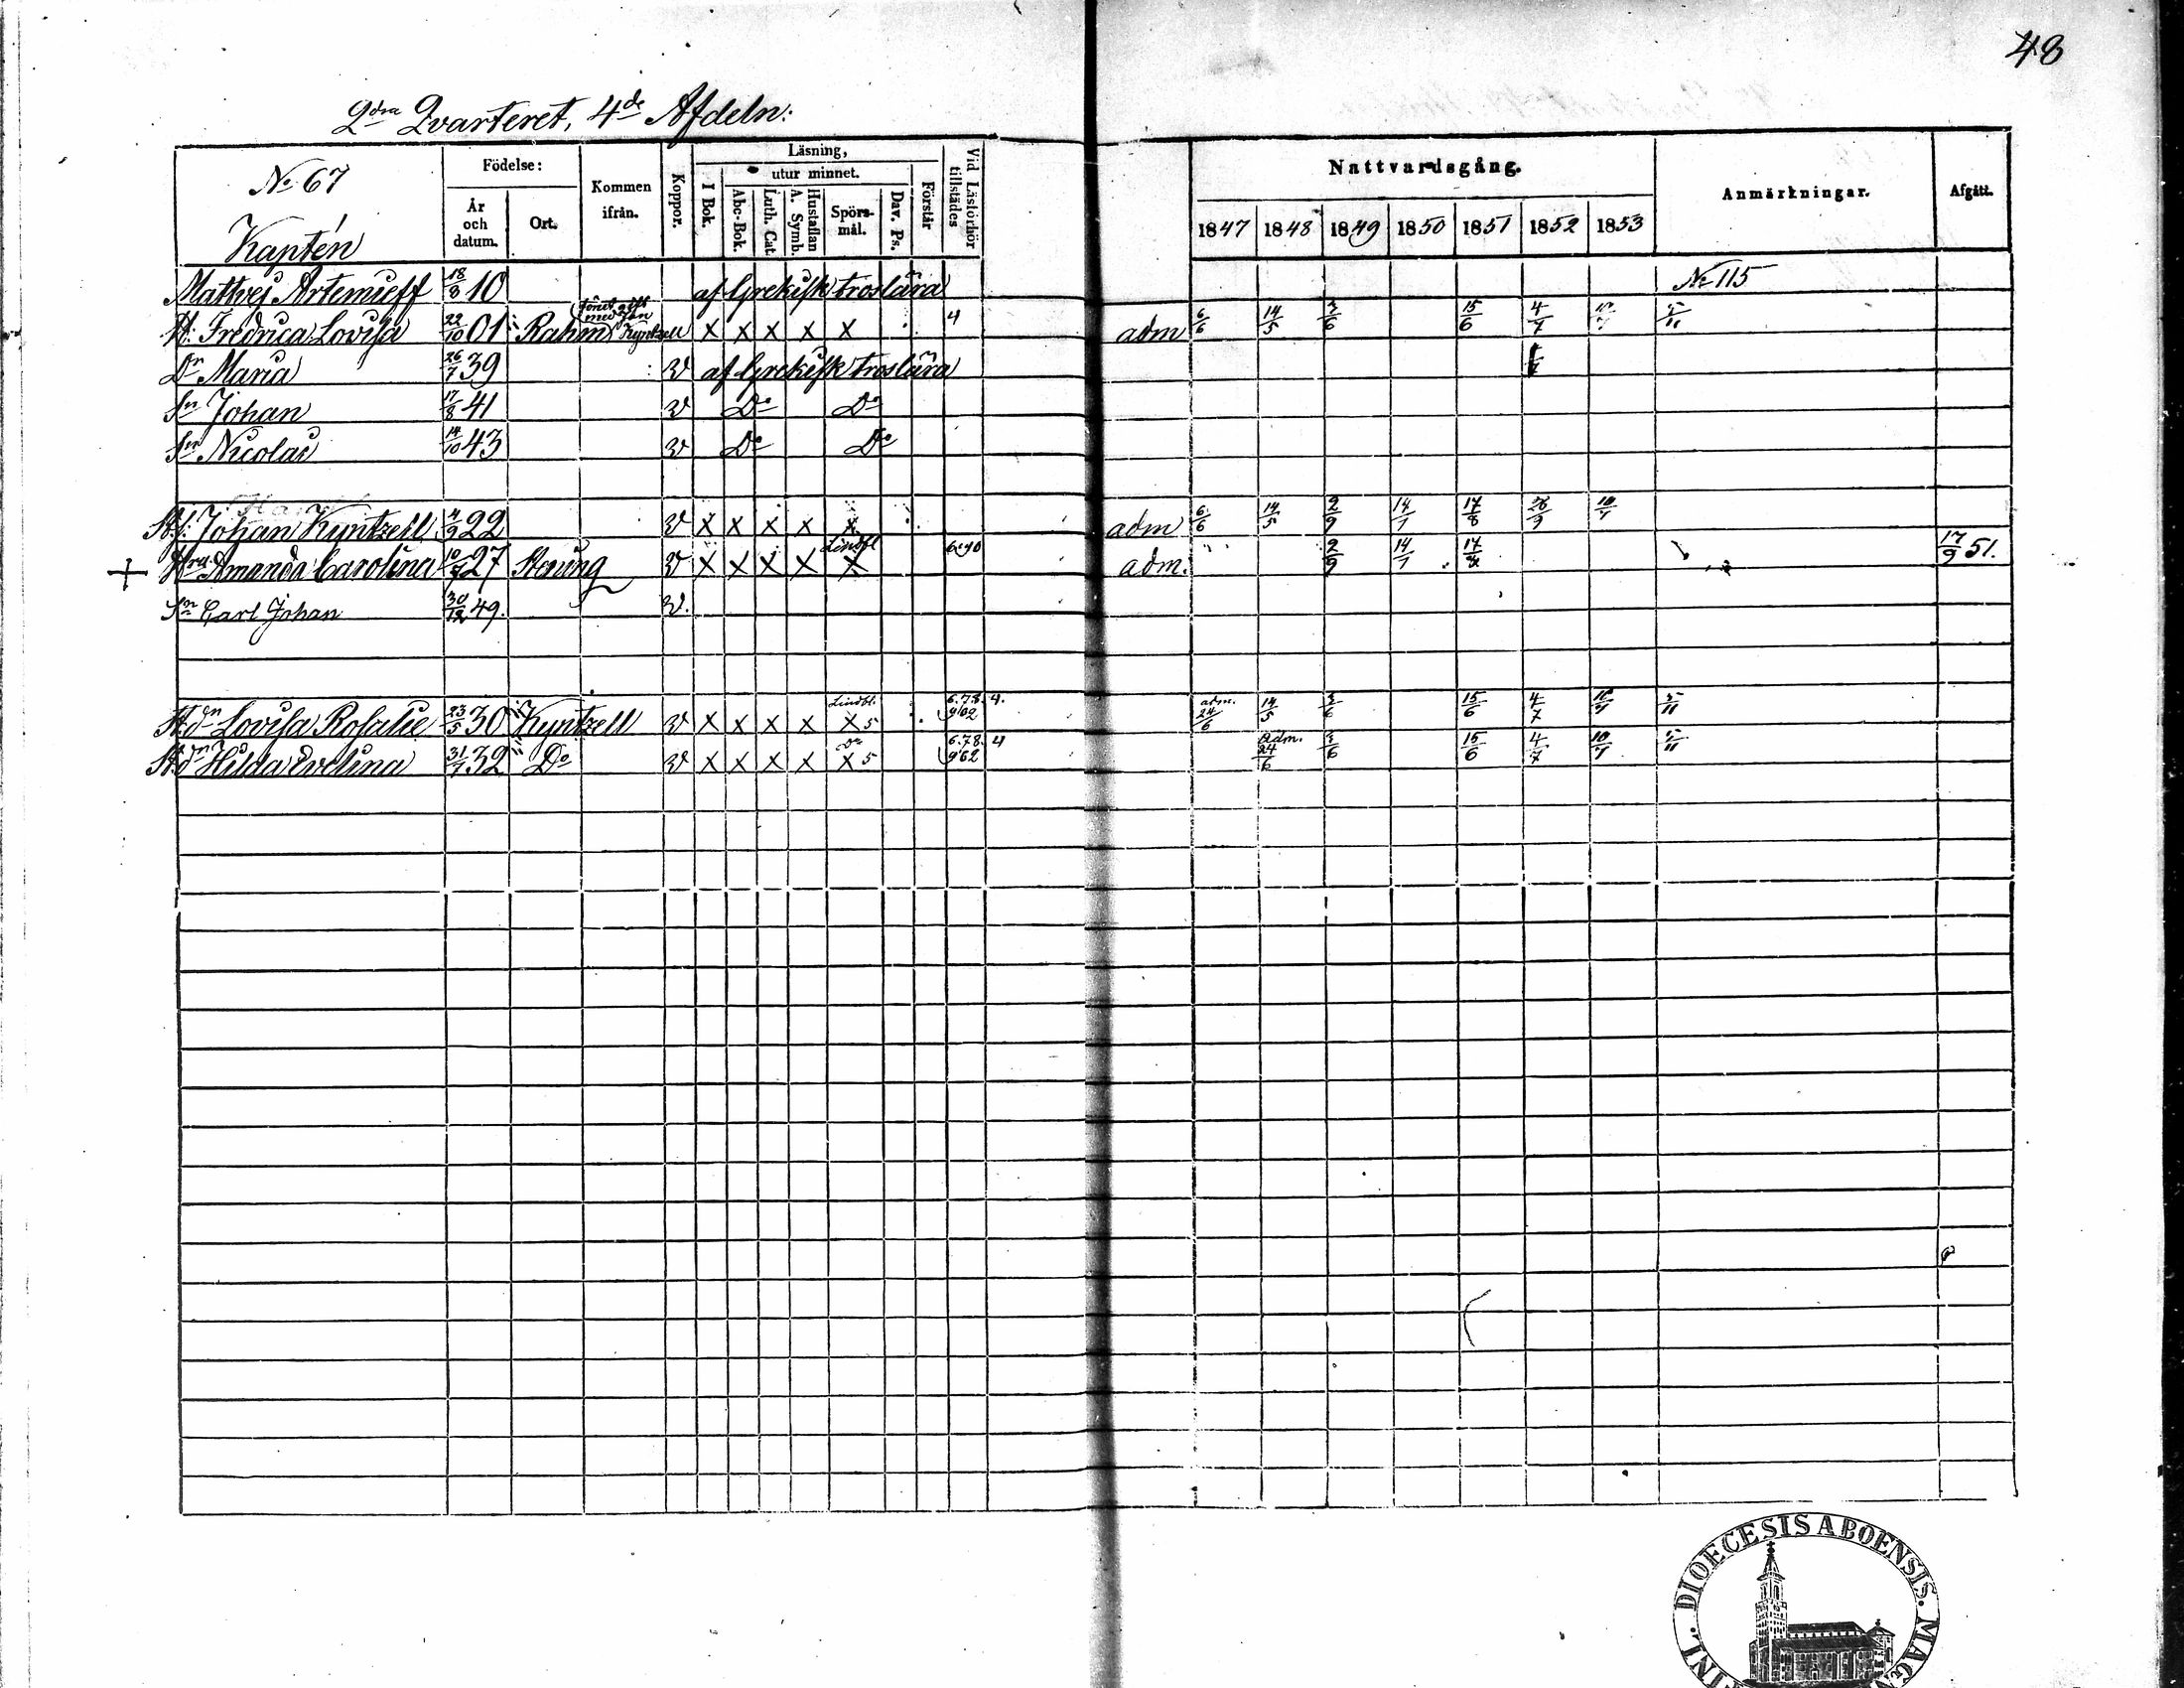 48
2dra Qvarteret, 4de Afdeln:
No 67
Kaptén
Födelse:
År och datum.
Ort.
Kommen ifrån.
Koppor.
Läsning,
I Bok.
utur minnet.
Abc-Bok.
Luth. Cat.
Hustaflan A. Symb.
Spörsmål.
Dav. Ps.
Förstår
Vid Läsförhör tillstädes
Nattvardsgång.
1847 1848 1849 1850 1851 1852 1853
Anmärkningar.
Afgått.
Mattvej Artemieff 18/8 10 af Grekisk troslära No 115
H: Fredrica Lovisa 22/10 01 Rahm Kyntzell X X X X X 4 adm 6/6 14/5 3/6 15/6 4/7 5/11
Dr Maria 26/7 39 v af Grekisk troslära
Sn Johan 17/8 41 v Do Do
Sn Nicolai 14/10 43 v Do Do
Johan Kyntzell 4/9 22 v X X X X X adm 6/6 14/5 2/9 14/1 17/8 26/9
Hru Amanda Carolina 27 v X X X X X adm. 2/9 14/1 17/8 17/9 51.
Sn Carl Johan 30/12 49. v.
St. dn Lovisa Rosalie 23/5 30 Kyntzell v X X X X Lindbl. X 5 6.7.8. 4. adm. 24/6 14/5 3/6 15/6 4/7 5/11
St. dn Hilda Evelina 31/7 32 Do v X X X X Do X 5 6.7.8. 4 adm. 24/6 3/6 15/6 4/7 10/7 5/11
DIOECESIS ABOENSIS. MAG